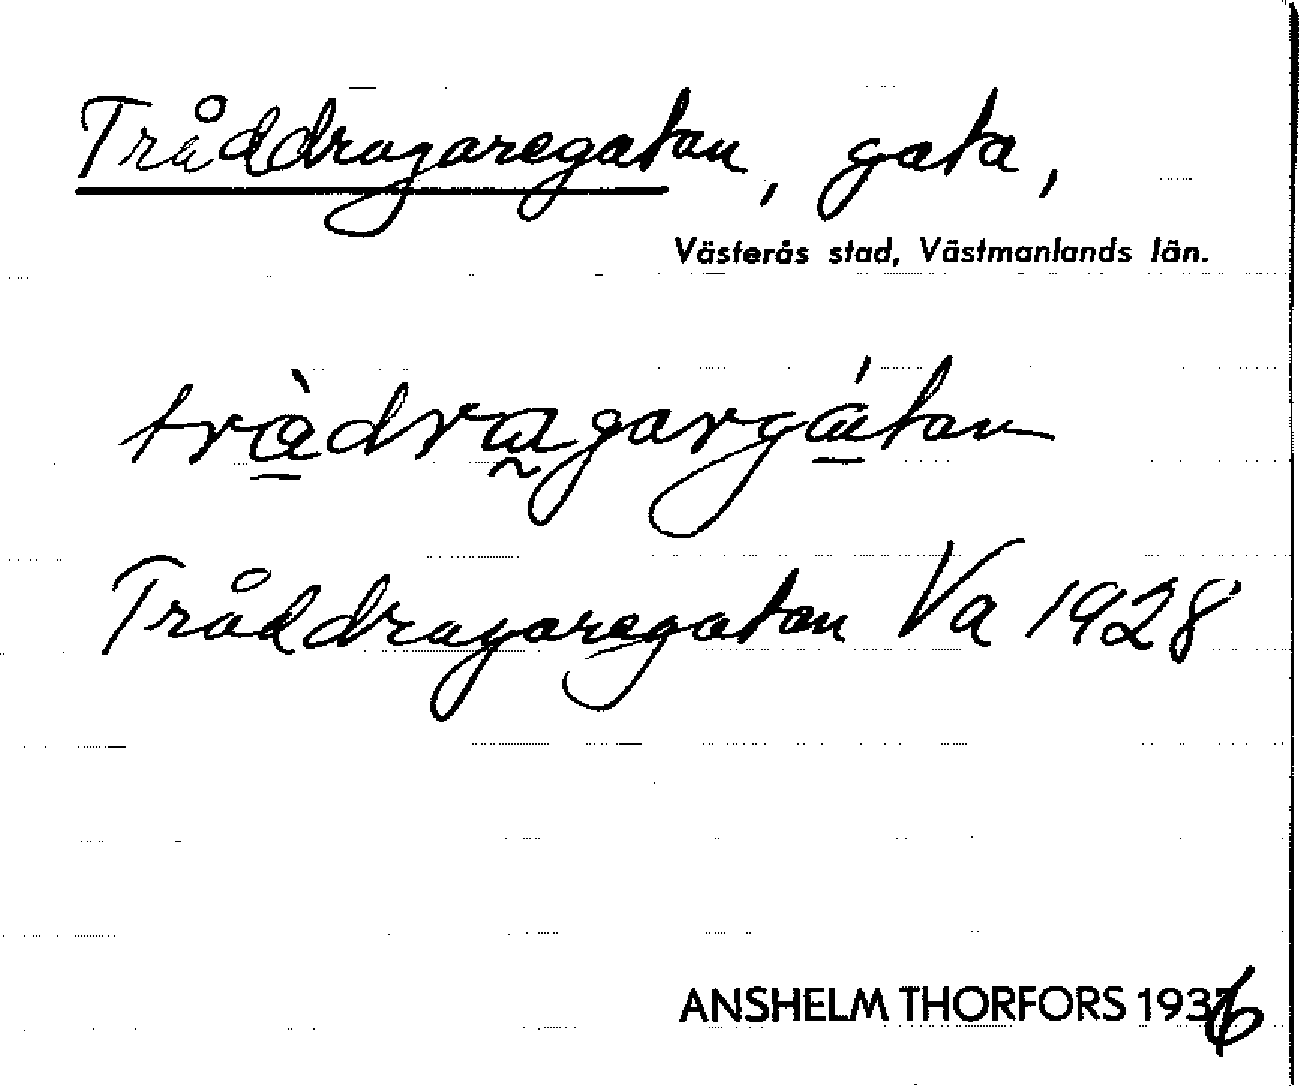 Tråddragaregatan, gata,
Västerås stad, Västmanlands län.
tràdragargátan
Tråddragaregatan Va 1928
ANSHELM THORFORS 1936